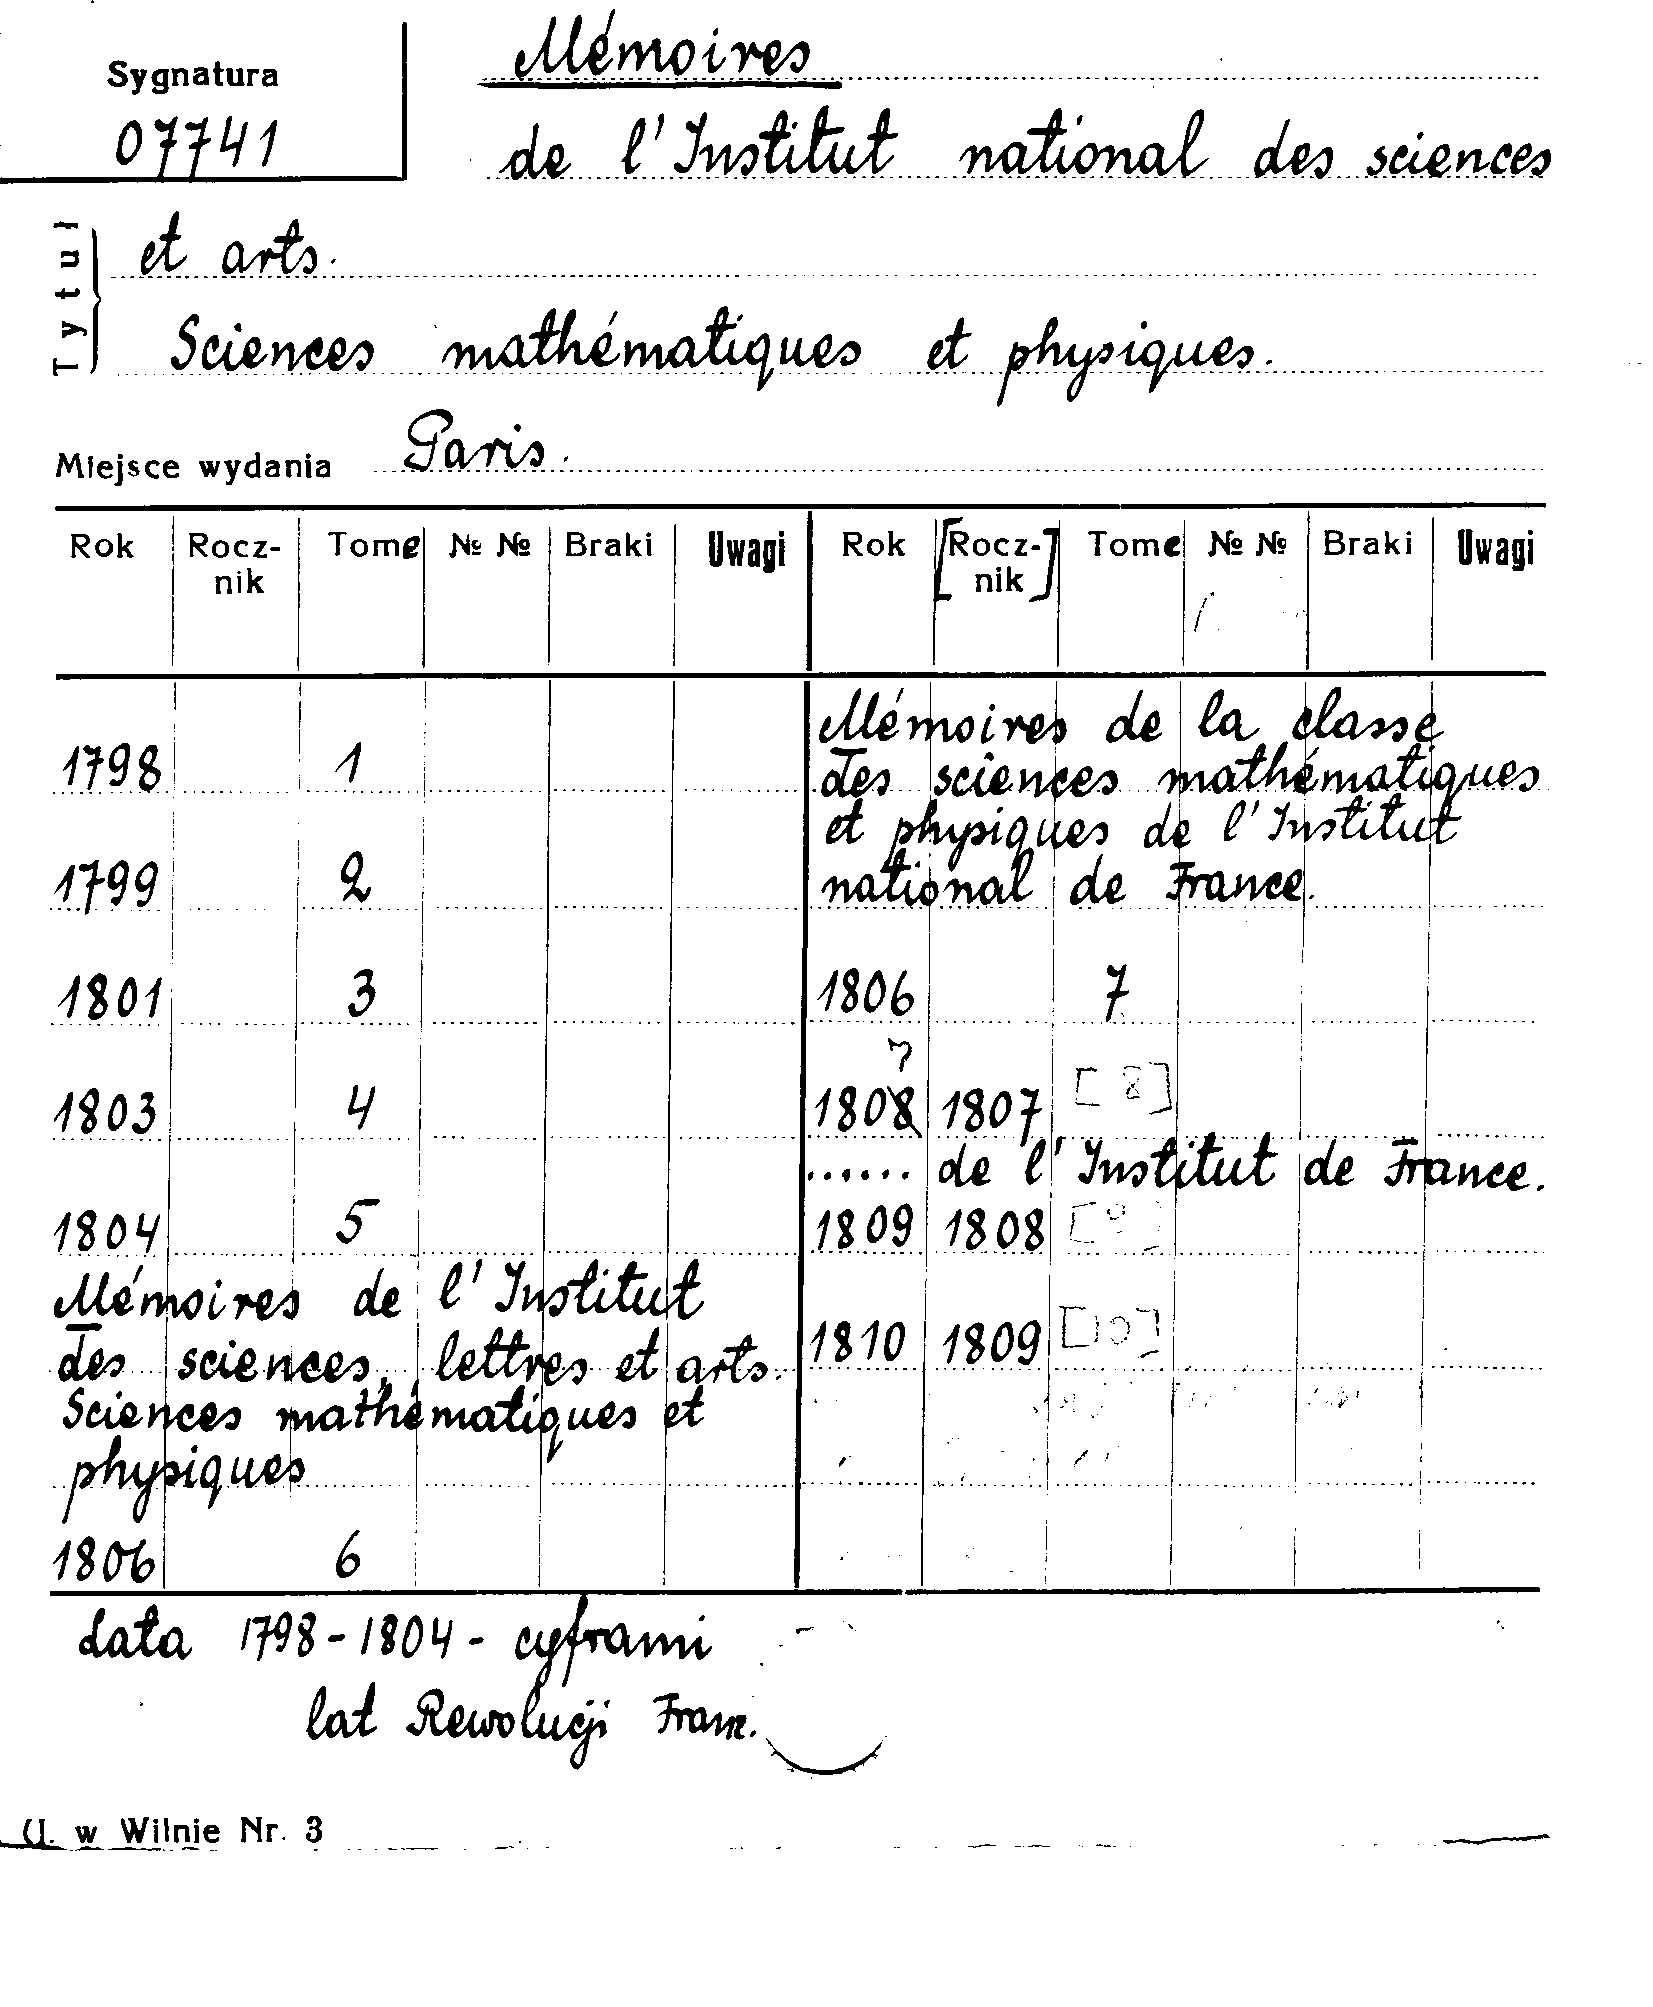 Sygnatura
07741
Mémoires
de l'Institut national des sciences
Tytuł
et arts.
Sciences mathématiques et physiques.
Miejsce wydania Paris.
Rok Rocz- Tome № № Braki Uwagi Rok [Rocz-] Tome № № Braki Uwagi
nik nik
1798 1
1799 2
1801 3
1803 4
1804 5
Mémoires de l'Institut
des sciences, lettres et arts.
Sciences mathématiques et
physiques
1806 6
Mémoires de la classe
des sciences mathématiques
et physiques de l'Institut
national de France.
1806 7
7
1808 1807 [8]
...... de l'Institut de France.
1809 1808 [9]
1810 1809 [10]
data 1798-1804 - cyframi
lat Rewolucji Franc.
U. w Wilnie Nr. 3